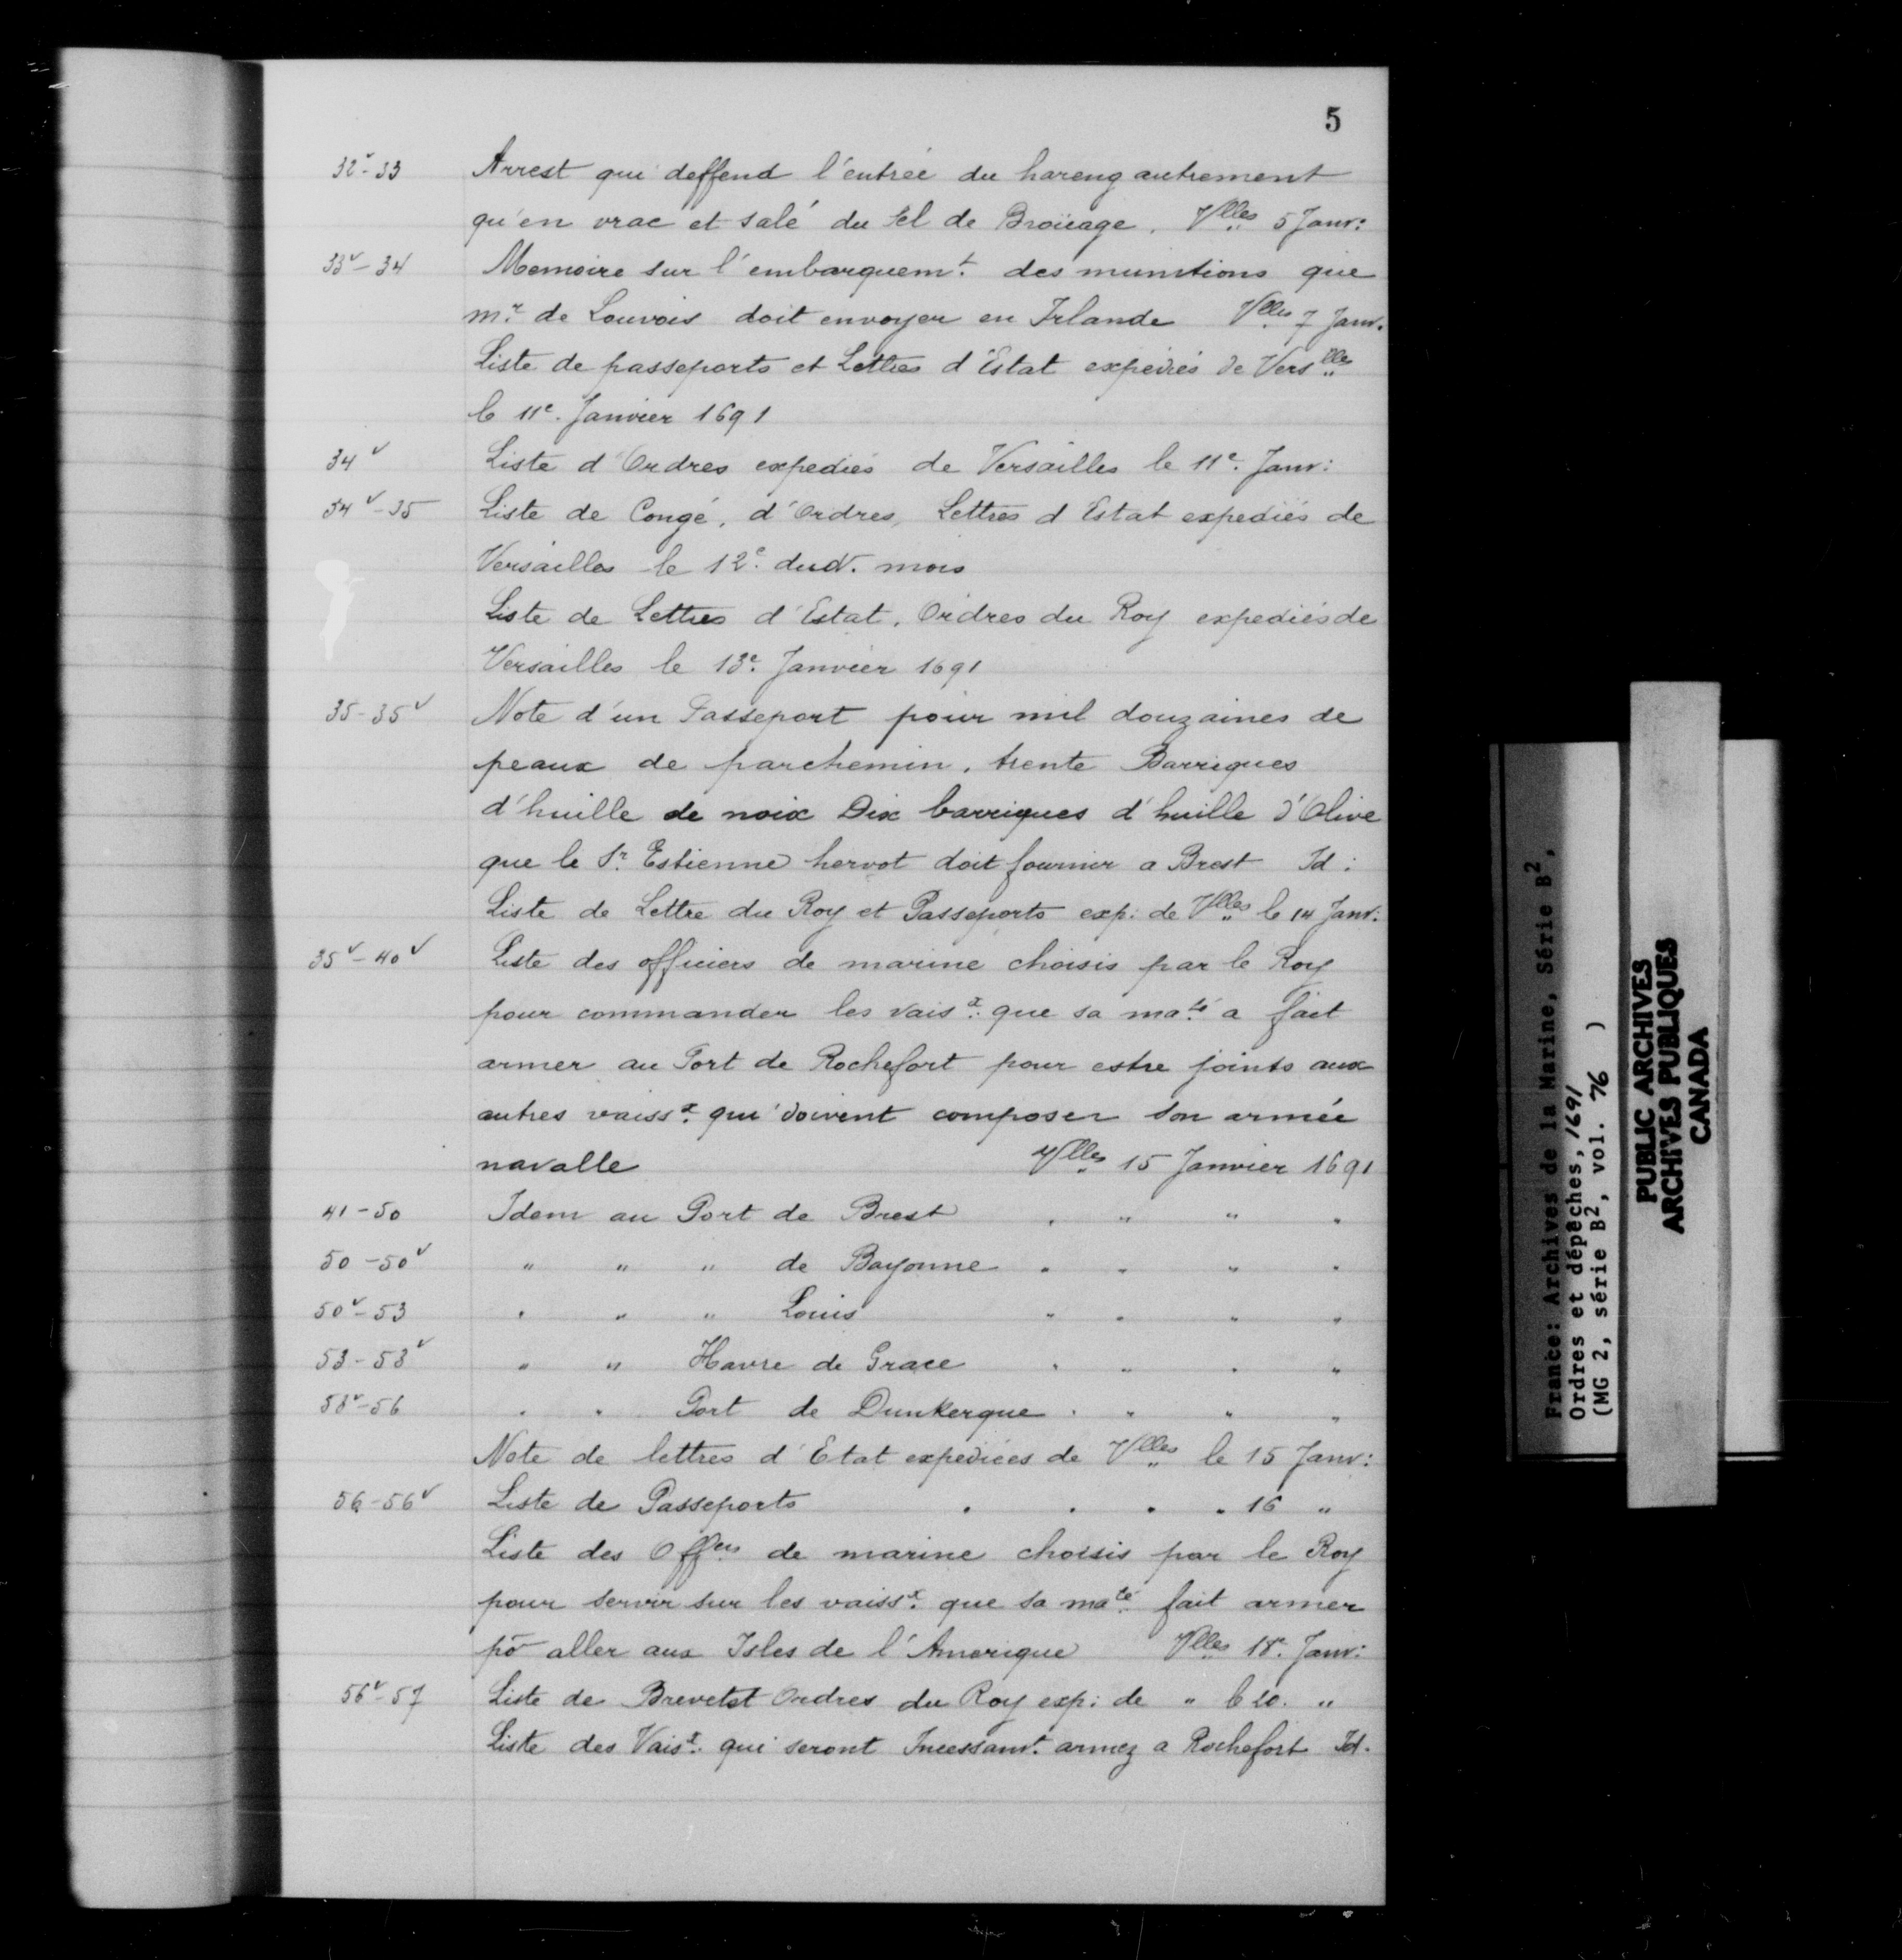 5
32v-33 Arrest qui deffend l'entrée du hareng autrement
qu'en vrac et salé du sel de Broüage. Vlles 5 Janv:
33v-34 Memoire sur l'embarquemt. des munitions que
mr. de Louvois doit envoyer en Irlande Vlles 7 Janv.
Liste de passeports et Lettres d'Estat expediés de Verslles
le 11e. Janvier 1691
34v Liste d'Ordres expediés de Versailles le 11e. Janv:
34v-35 Liste de Congé, d'Ordres, Lettres d'Estat expediés de
Versailles le 12e. dud. mois
Liste de Lettres d'Estat, Ordres du Roy expediés de
Versailles le 13e. Janvier 1691
35-35v Note d'un Passeport pour mil douzaines de
peaux de parchemin, trente Barriques
d'huille de noix Dix barriques d'huille d'Olive
que le Sr. Estienne hervot doit fournir a Brest Id:
Liste de Lettre du Roy et Passeports exp: de Vlles le 14 Janv:
35v-40v Liste des officiers de marine choisis par le Roy
pour commander les vaisx. que sa maté. a fait
armer au Port de Rochefort pour estre joints aux
autres vaissx. qui doivent composer son armée
navalle Vlles 15 Janvier 1691
41-50 Idem au Port de Brest " " " "
50-50v " " " de Bayonne " " " "
50v-53 " " " Louis " " " "
53-53v " " Havre de Grace " " " "
53v-56 " " Port de Dunkerque " " " "
Note de lettres d'Etat expediées de Vlles le 15 Janv:
56-56v Liste de Passeports " " " " 16 "
Liste des Offers de marine choisis par le Roy
pour servir sur les vaissx. que sa maté. fait armer
po aller aux Isles de l'Amerique Vlles 18e. Janv:
56v-57 Liste de Brevetet Ordres du Roy exp: de " le 20. "
Liste des Vaisx. qui seront Incessamt. armez a Rochefort Id.
France: Archives de la Marine, Série B2,
Ordres et dépêches, 1691
(MG 2, série B2, vol. 76 )
PUBLIC ARCHIVES
ARCHIVES PUBLIQUES
CANADA